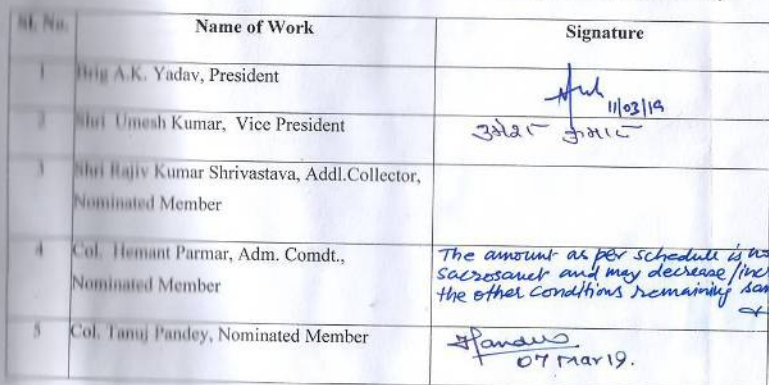 Sl. No. Name of Work Signature
1 Brig A.K. Yadav, President 11/03/19
2 Shri Umesh Kumar, Vice President उमेश कुमार
3 Shri Rajiv Kumar Shrivastava, Addl.Collector,
Nominated Member
4 Col. Hemant Parmar, Adm. Comdt.,
Nominated Member
The amount as per schedule is
sacrosanct and may decrease/
the other conditions remaining
5 Col. Tanuj Pandey, Nominated Member
07 Mar 19.